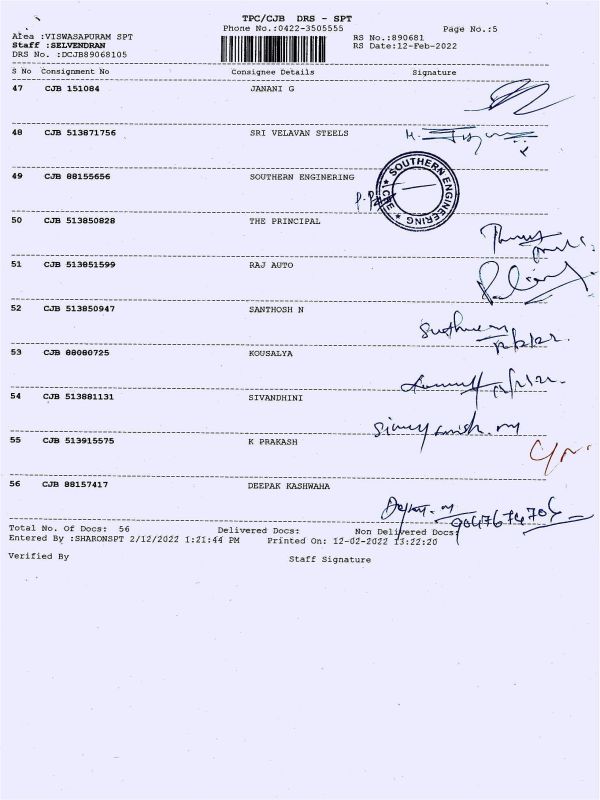 TPC/CJB DRS - SPT
Phone No.:0422-3505555
Page No.:5
Area :VISWASAPURAM SPT
RS No.:890681
Staff :SELVENDRAN
RS Date:12-Feb-2022
DRS No. :DCJB89068105
S No Consignment No Consignee Details Signature
47 CJB 151084 JANANI G
48 CJB 513871756 SRI VELAVAN STEELS
49 CJB 88155656 SOUTHERN ENGINERING
SOUTHERN ENGINEERING
CBE
50 CJB 513850828 THE PRINCIPAL
51 CJB 513851599 RAJ AUTO
52 CJB 513850947 SANTHOSH N
53 CJB 88080725 KOUSALYA
54 CJB 513881131 SIVANDHINI
55 CJB 513915575 K PRAKASH
56 CJB 88157417 DEEPAK KASHWAHA
Total No. Of Docs: 56 Delivered Docs: Non Delivered Docs:
Entered By :SHARONSPT 2/12/2022 1:21:44 PM Printed On: 12-02-2022 13:22:20
Verified By Staff Signature